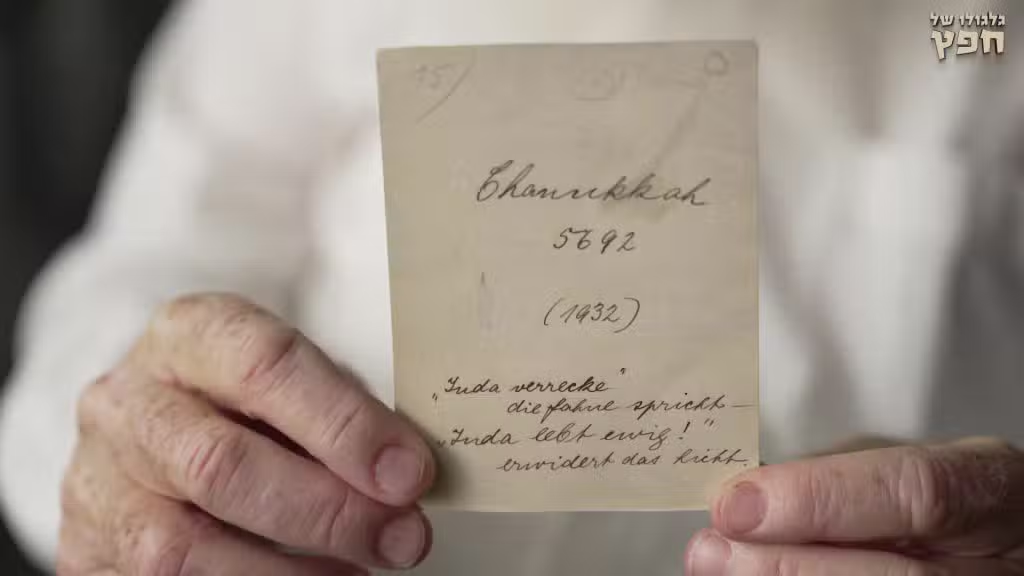 גלגולו של
חפץ
15/
Chanukkah
5692
(1932)
„Juda verrecke"
die Fahne spricht –
„Juda lebt ewig!"
erwidert das Licht.